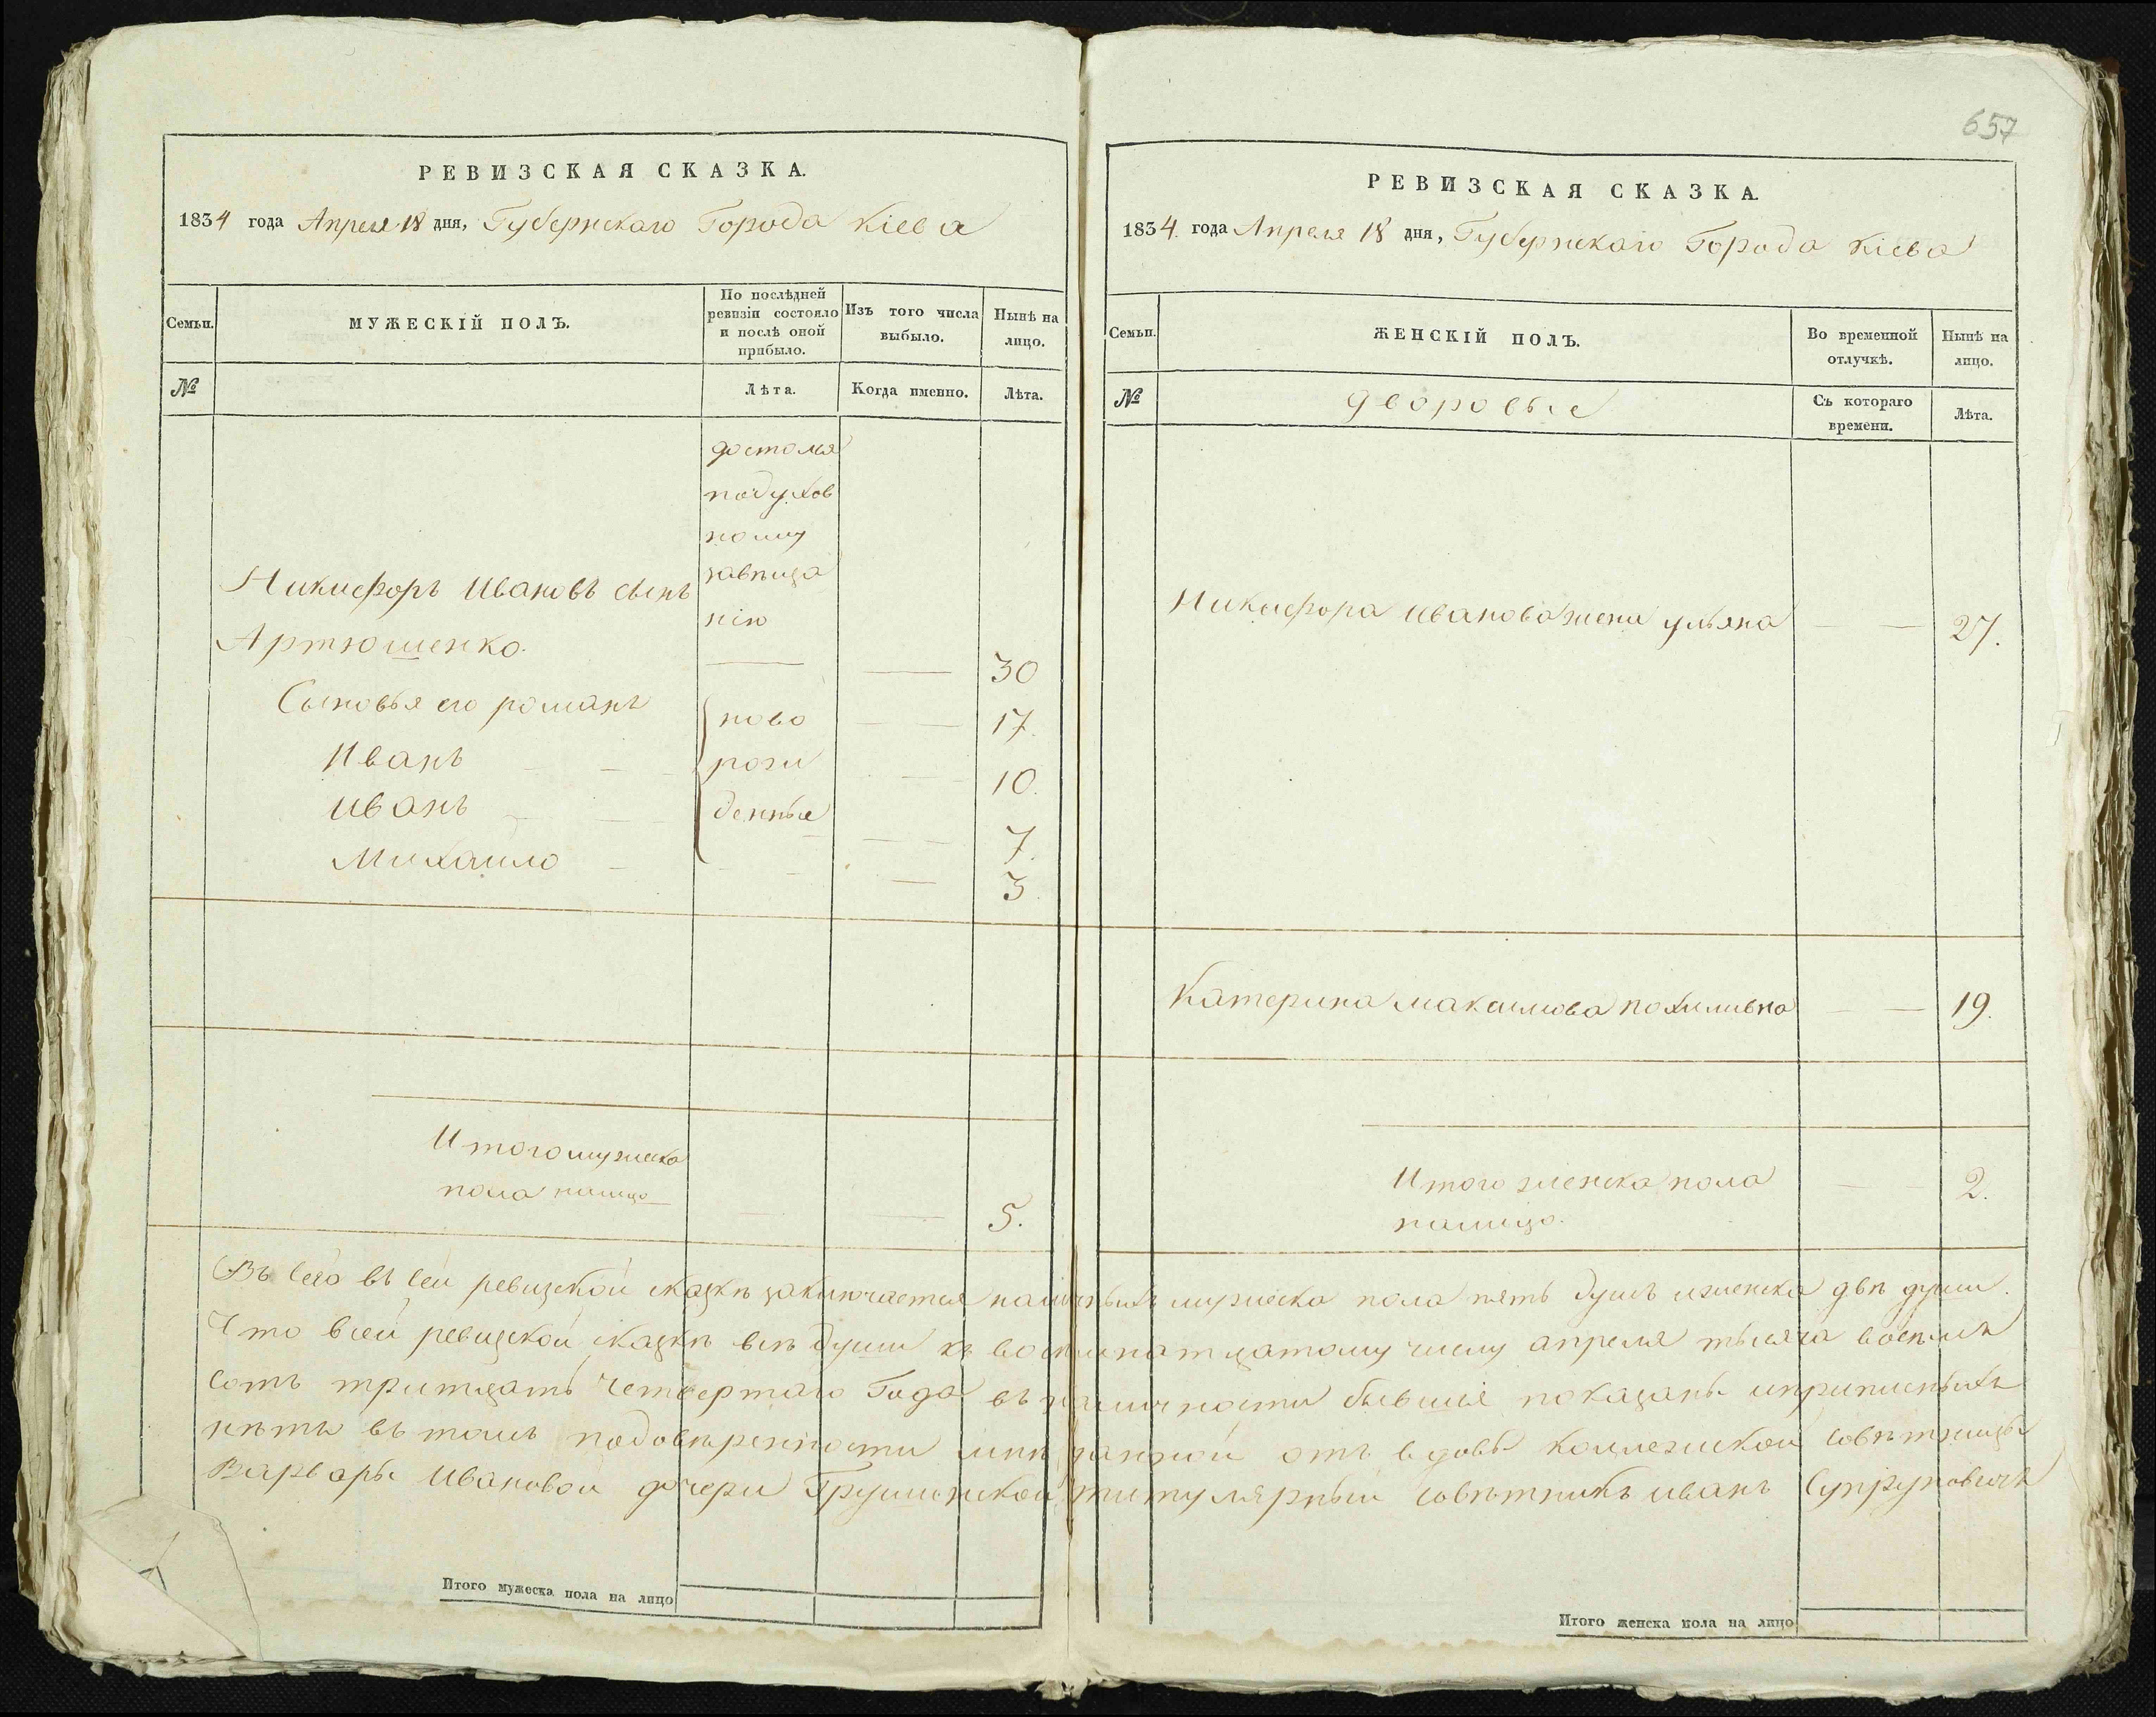 657
РЕВИЗСКАЯ СКАЗКА.
1834 года Апреля 18 дня, Губернскаго Города Кіева
Семьи.
МУЖЕСКІЙ ПОЛЪ.
По послѣдней ревизіи состояло и послѣ оной прибыло.
Изъ того числа выбыло.
Нынѣ на лицо.
№
Лѣта.
Когда именно.
Лѣта.
достолся
подухов
ному
завѣща
нію
Никифоръ Ивановъ сынъ
Артюшенко.
30
Сыновья его романъ
ново
17.
Иванъ
рожи
10.
Иванъ
денные
7.
Михаило
3.
Итого мужеска
пола налицо
5.
РЕВИЗСКАЯ СКАЗКА.
1834 года Апреля 18 дня, Губернскаго Города Кіева
Семьи.
ЖЕНСКІЙ ПОЛЪ.
Во временной отлучкѣ.
Нынѣ на лицо.
№
дворовые
Съ котораго времени.
Лѣта.
Никифора Иванова жена ульяна
27.
Катерина Максимова
19.
Итого женска пола
2.
налицо.
Въсего въ сей ревизской сказкѣ заключается наличныхъ мужеска пола пять душъ иженска двѣ души.
Что всей ревизской сказкѣ всѣ души къ восемнатцатому числу апреля тысяча восемъ
сотъ тритцать четвертаго Года въ наличности бывшіе показаны иприписныхъ
нѣтъ въ томъ подовѣренности мнѣ данной отъ вдовы коллежской совѣтницы
Варвары Ивановой дочери Грушонской титулярный совѣтникъ иванъ Супруновичъ
Итого мужеска пола на лицо
Итого женска пола на лицо